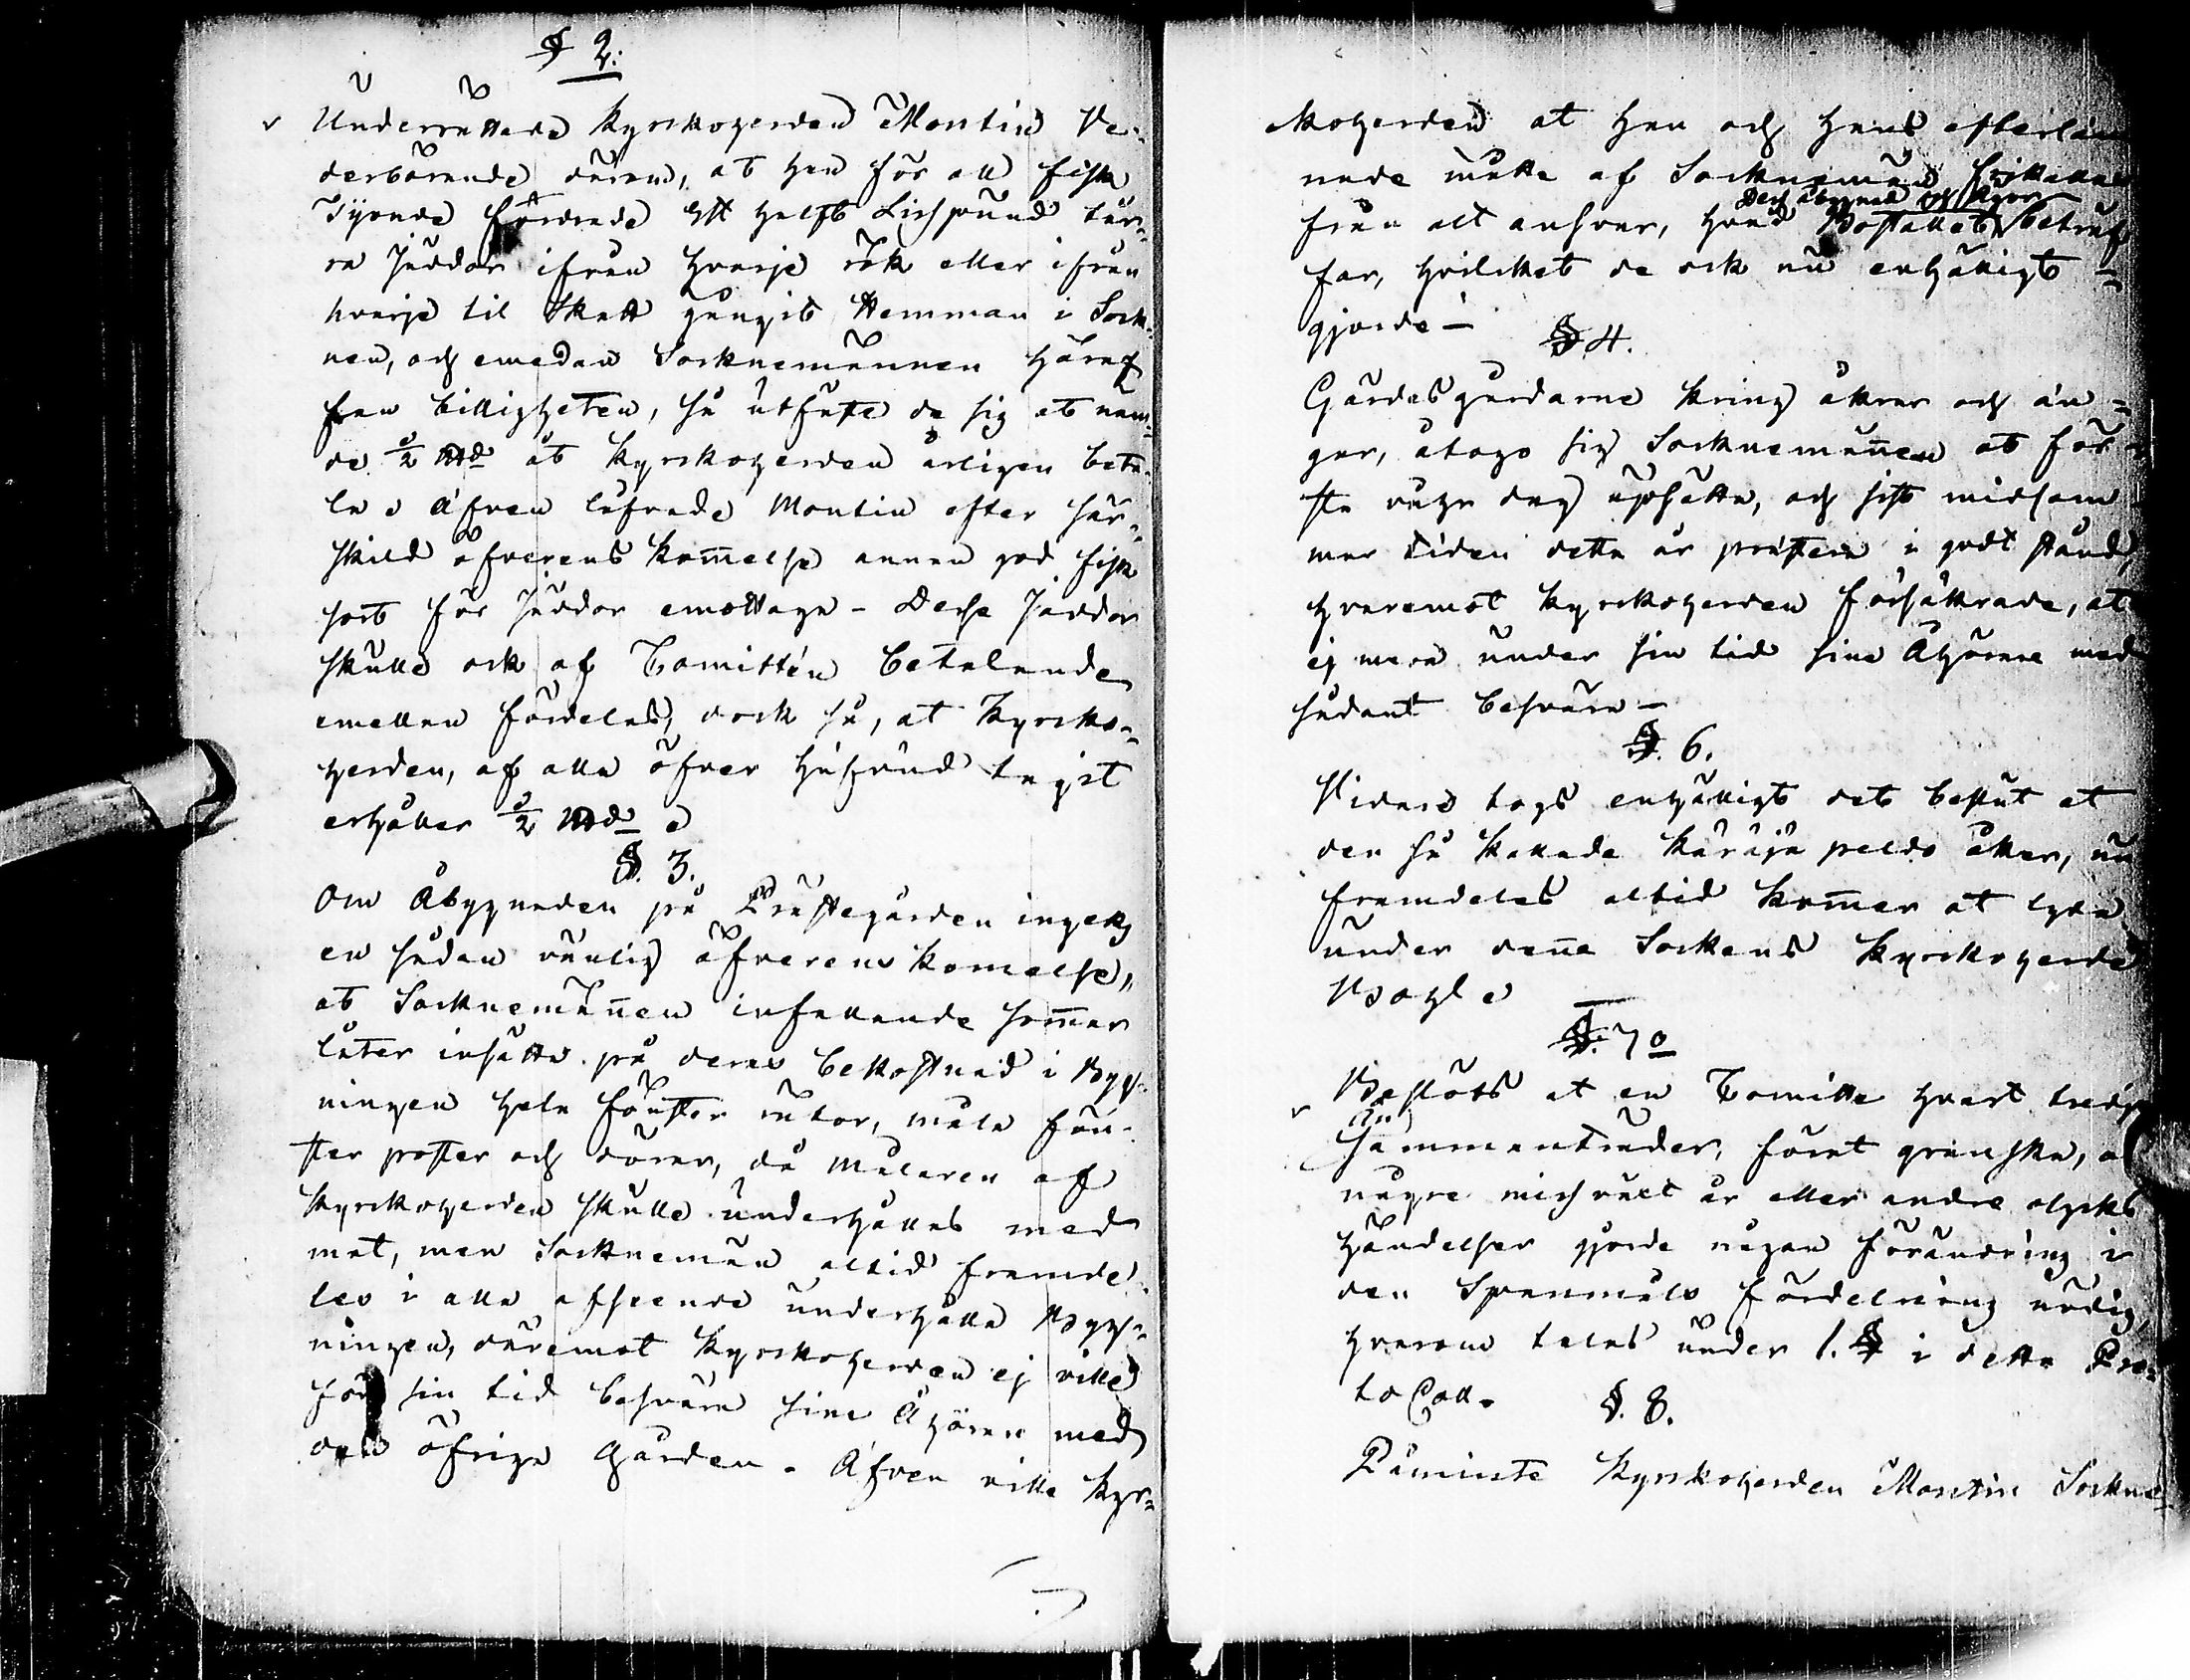 § 2.
Underrättade Kyrkoherden Montin Ve-
derbörande därom, at han för all fisk
Tijonde fordrade Ett halft Lispund tor-
ra Jäddor ifrån hvarje rök eller ifrån
hvarje til Skatt gångit Hemman i Sock-
nen, och emedan Socknemännen häraf
fan billigheten, så utfäste de sig at näm-
de ½ ℔d åt Kyrckoherden årligen beta-
la Äfven lofvade Montin efter sär-
skild öfverens kom̄else annan god fisk
sort för Jäddor emottaga - Desse Jäddor
skulle ock af Comittén betalande
emellan fördelas, dock så, at Kyrcko-
herden, af alla öfver hufvud tagit
erhåller ½ ℔d
§. 3.
Om Åbygnaden på Prästegården ingeks
en sådan vänlig öfverens komelse,
at Sockneman̄en infallande som̄ar
låter insätta på deras bekostnad i Byg-
ningen hela fönster rutor, måla fön-
ster poster och dörar, då Målaren af
Kyrckoherden skulle underhållas med
mat, men Socknemän altid framde-
les i alla afseende underhålla Bygg-
ningen, däremot Kyrckoherden ej ville
för sin tid besvära sine Åhörare med
den öfriga Gården. Äfven ville Kyr-
ckoherden at han och hans efterläm
nade måtte af Socknemän frikallas
Dess åbygnad
från alt ansvar, hvad Bostället beträf
far, hvilcket de ock nu enhälligt -
gjorde -
§ 4.
Gärdesgårdarne kring åkrar och än-
gar, åtogo sig Sockneman̄en at för-
sta väga dag upsätta, och sist midsom
mar tiden detta år prästera i godt stånd,
hvaremot Kyrckoherden försäkrade, at
ej mera under sin tid sine Åhörare med
sådant besvära -
§. 6.
Vidare togs enhälligt det beslut at
den så kallade Käräjä peldo åker, nu
framdeles altid kom̄er at lyda
under den̄a Sockens Kyrckoherde
Bohl
§. 7o
Beslöts at en Comitte hvart tredje
År
sammanträder, föret granska, o
någre missväxt år eller andre olycks
händelser gjorde någon förändring i
den Spanmåls fördelning nödig,
hvarom talas under 1. § i detta Pro-
tocoll.
§. 8.
Påminte Kyrckoherden Montin Sockne-